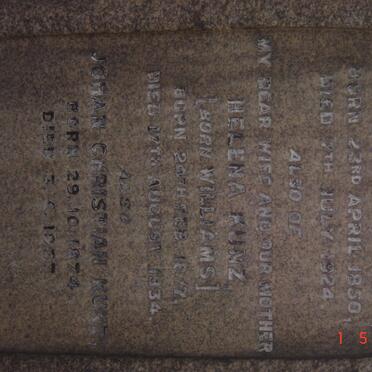 BORN 23RD APRIL 1850,
DIED 7TH JULY 1924.
ALSO OF
MY DEAR WIFE AND OUR MOTHER
HELENA KUNZ,
[BORN WILLIAMS]
BORN FEB
DIED 17TH AUGUST 1934.
ALSO
JOHAN CHRISTIAN
BORN 29.10.1874,
DIED 1957
1 5